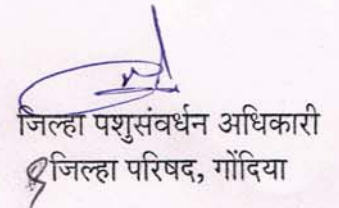 जिल्हा पशुसंवर्धन अधिकारी
जिल्हा परिषद, गोंदिया